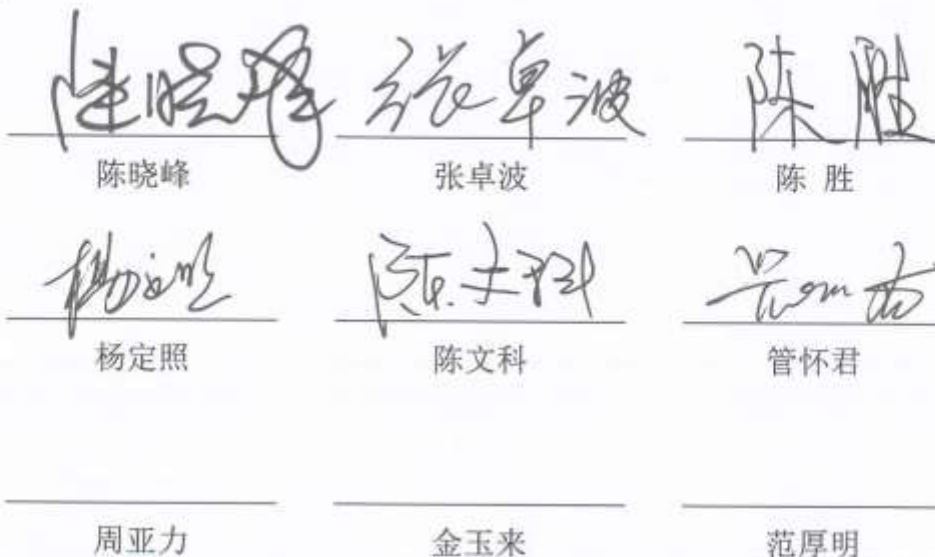 陈晓峰 张卓波 陈胜
陈晓峰 张卓波 陈 胜
杨定照 陈文科
杨定照 陈文科 管怀君
周亚力 金玉来 范厚明